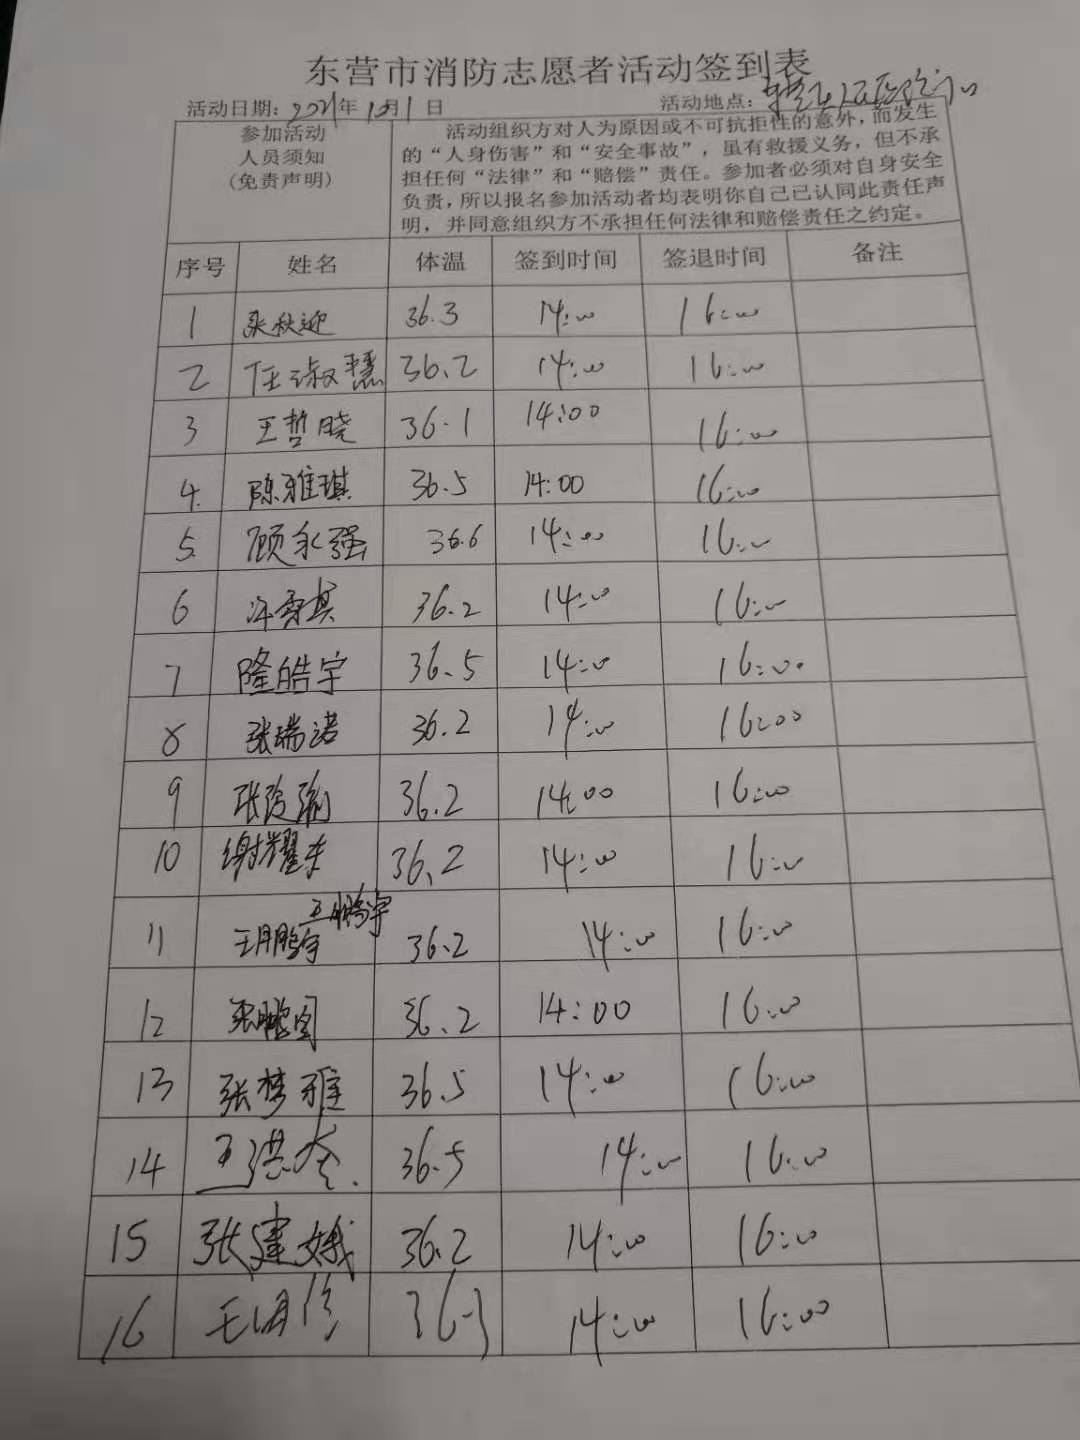 东营市消防志愿者活动签到表
活动日期：2021年10月1日 活动地点：
参加活动
人员须知
（免责声明）
活动组织方对人为原因或不可抗拒性的意外，而发生
的“人身伤害”和“安全事故”，虽有救援义务，但不承
担任何“法律”和“赔偿”责任。参加者必须对自身安全
负责，所以报名参加活动者均表明你自己已认同此责任声
明，并同意组织方不承担任何法律和赔偿责任之约定。
序号 姓名 体温 签到时间 签退时间 备注
1 张秋迎 36.3 14:00 16:00
2 任淑慧 36.2 14:00 16:00
3 王哲晓 36.1 14:00 16:00
4. 陈雅琪 36.5 14:00 16:00
5 顾永强 36.6 14:00 16:00
6 36.2 14:00 16:00
7 隆皓宇 36.5 14:00 16:00
8 张瑞诺 36.2 14:00 16:00
9 36.2 14:00 16:00
10 谢耀东 36.2 14:00 16:00
11 王鹏宇 王鹏宇 36.2 14:00 16:00
12 36.2 14:00 16:00
13 张梦雅 36.5 14:00 16:00
14 36.5 14:00 16:00
15 张建娥 36.2 14:00 16:00
16 36.3 14:00 16:00